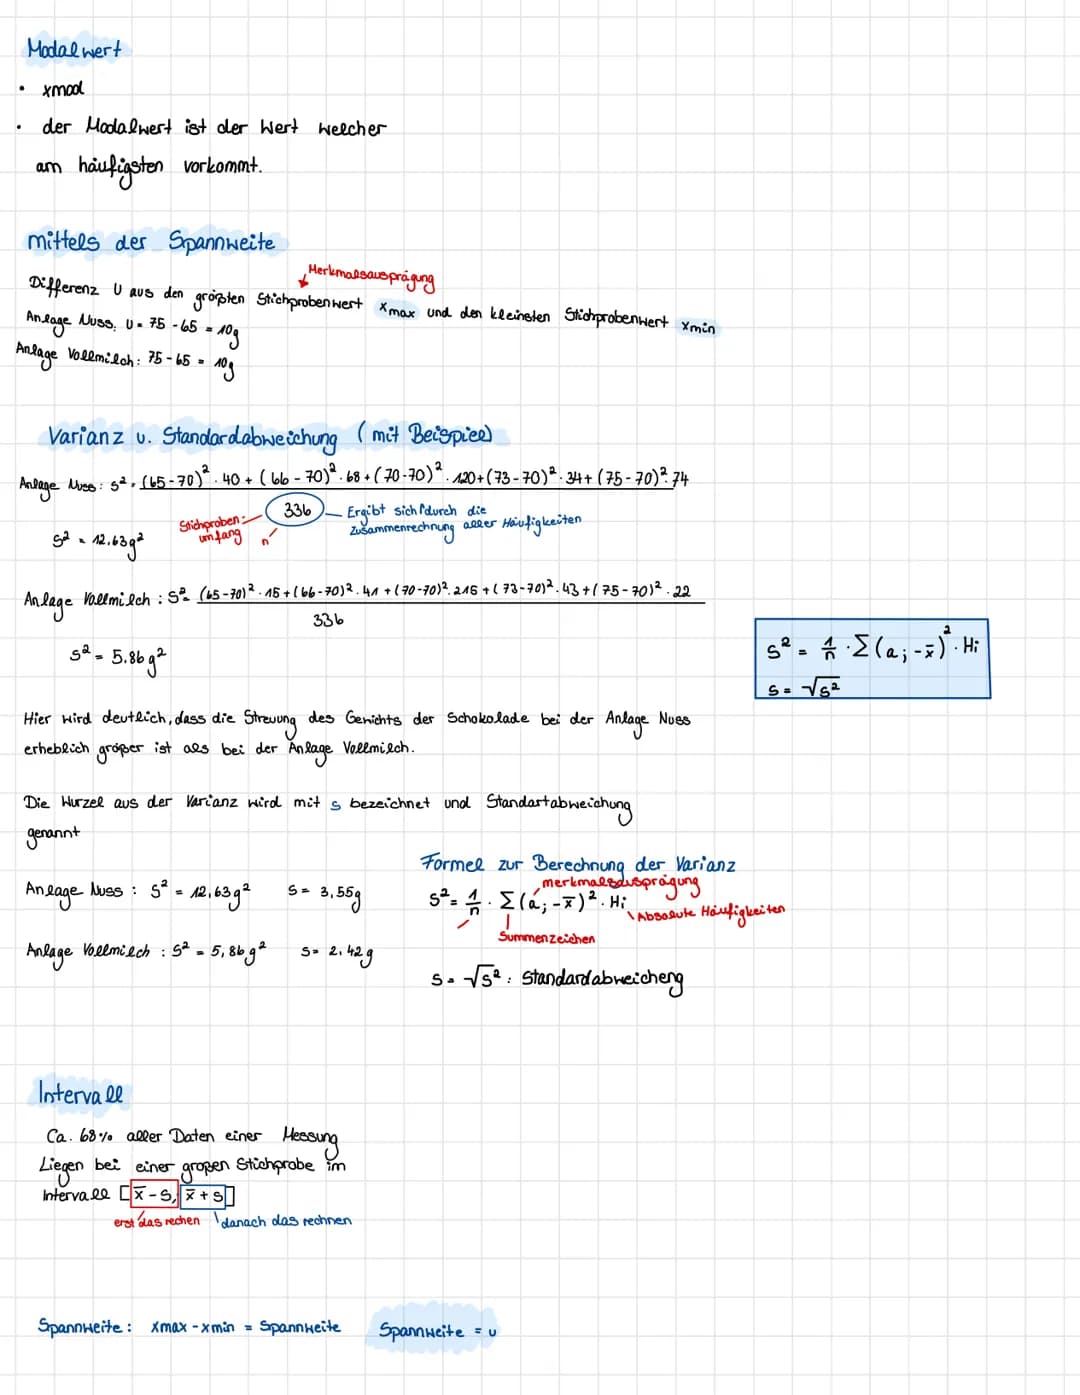 Modalwert
• xmod
• der Modalwert ist der Wert welcher
am häufigsten vorkommt.
mittels der Spannweite
Merkmalsausprägung
Differenz U aus den größten Stichprobenwert xmax und den kleinsten Stichprobenwert xmin
Anlage Nuss: U = 75 - 65 = 10g
Anlage Vollmilch: 75 - 65 = 10g
Varianz u. Standardabweichung (mit Beispiel)
Anlage Nuss: s² = (65-70)² · 40 + (66-70)² · 68 + (70-70)² · 120 + (73-70)² · 34 + (75-70)² · 74
336
Stichproben-
umfang
n
Ergibt sich durch die
Zusammenrechnung aller Häufigkeiten
s² = 12.63g²
Anlage Vollmilch : s² = (65-70)² · 15 + (66-70)² · 41 + (70-70)² · 215 + (73-70)² · 43 + (75-70)² · 22
336
s² = 5.86g²
s² = 1/n · Σ(ai - x̄)² · Hi
s = √s²
Hier wird deutlich, dass die Streuung des Gewichts der Schokolade bei der Anlage Nuss
erheblich größer ist als bei der Anlage Vollmilch.
Die Wurzel aus der Varianz wird mit s bezeichnet und Standartabweichung
genannt
Formel zur Berechnung der Varianz
merkmalsausprägung
Anlage Nuss : s² = 12,63g² s = 3,55g
s² = 1/n · Σ(ai - x̄)² · Hi
Absolute Häufigkeiten
Summenzeichen
Anlage Vollmilch : s² = 5,86g² s = 2,42g
s = √s² : Standardabweicheng
Intervall
Ca. 68% aller Daten einer Messung
Liegen bei einer großen Stichprobe im
Intervall [x̄ - s, x̄ + s]
erst das rechen danach das rechnen
Spannweite: xmax - xmin = Spannweite Spannweite = u